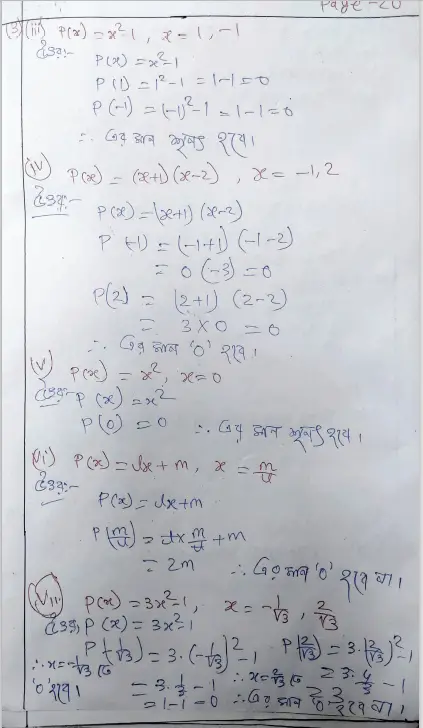 Page-20
(3)(iii) P(x) = x²-1, x = 1, -1
উত্তর:- P(x) = x²-1
P(1) = 1²-1 = 1-1 = 0
P(-1) = (-1)²-1 = 1-1 = 0
∴ এর মান শূন্য হবে।
(iv) P(x) = (x+1)(x-2), x = -1, 2
উত্তর:- P(x) = (x+1)(x-2)
P(-1) = (-1+1)(-1-2)
= 0(-3) = 0
P(2) = (2+1)(2-2)
= 3×0 = 0
∴ এর মান '0' হবে।
(v) P(x) = x², x=0
উত্তর:- P(x) = x²
P(0) = 0 ∴ এর মান শূন্য হবে।
(vi) P(x) = lx+m, x = m/l
উত্তর:-
P(x) = lx+m
P(m/l) = l×m/l+m
= 2m ∴ এর মান '0' হবে না।
(vii) P(x) = 3x²-1, x = -1/√3, 2/√3
উত্তর, P(x) = 3x²-1
P(-1/√3) = 3·(-1/√3)²-1 P(2/√3) = 3·(2/√3)²-1
∴ x=-1/√3 তে = 3·1/3-1 ∴ x=2/√3 তে = 3·4/3-1
'0' হবে। = 1-1 = 0 ∴ এর মান '0' হবে না। = 3